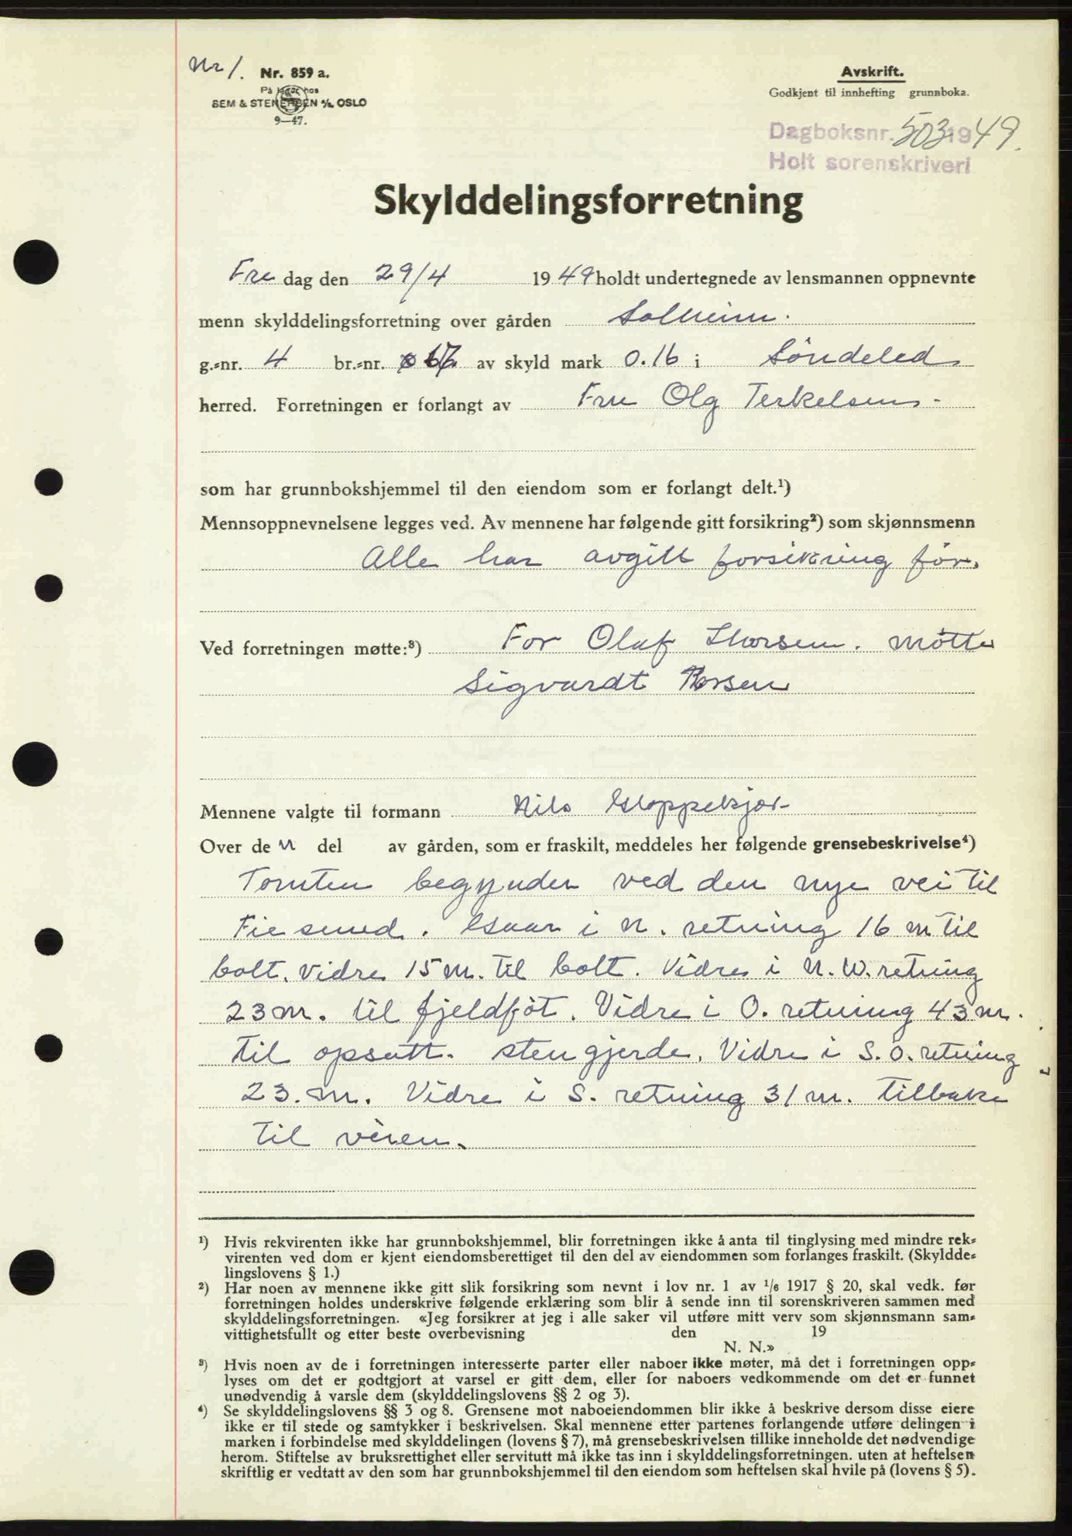 Nr 1.
Nr. 859 a.
På lager hos
SEM & STENERSEN A/S. OSLO
9—47.
Avskrift.
Godkjent til innhefting grunnboka.
Dagboksnr. 503 1949.
Holt sorenskriveri
Skylddelingsforretning
Fre dag den 29/4 1949 holdt undertegnede av lensmannen oppnevnte
menn skylddelingsforretning over gården Solheim.
g.-nr. 4 br.-nr. 67 av skyld mark 0.16 i Söndeled
herred. Forretningen er forlangt av Fru Olg Terkelsen.
som har grunnbokshjemmel til den eiendom som er forlangt delt.¹)
Mennsoppnevnelsene legges ved. Av mennene har følgende gitt forsikring²) som skjønnsmenn
Alle har avgitt forsikring før.
Ved forretningen møtte:³) For Oluf Thorsen. møtte
Sigvardt Thorsen
Mennene valgte til formann Nils
Over de n del av gården, som er fraskilt, meddeles her følgende grensebeskrivelse⁴)
Tomten begynder ved den nye vei til
Fiesund. Gaar i N. retning 16 m til
bolt. Vidre 15 m. til bolt. Vidre i N. W. retning
23 m. til fjeldföt. Vidre i O. retning 43 m.
til opsatt. stengjerde. Vidre i S. O. retning
23. m. Vidre i S. retning 31 m. tilbake
til veien.
¹) Hvis rekvirenten ikke har grunnbokshjemmel, blir forretningen ikke å anta til tinglysing med mindre rek-
virenten ved dom er kjent eiendomsberettiget til den del av eiendommen som forlanges fraskilt. (Skyldde-
lingslovens § 1.)
²) Har noen av mennene ikke gitt slik forsikring som nevnt i lov nr. 1 av ¹/₆ 1917 § 20, skal vedk. før
forretningen holdes underskrive følgende erklæring som blir å sende inn til sorenskriveren sammen med
skylddelingsforretningen. «Jeg forsikrer at jeg i alle saker vil utføre mitt verv som skjønnsmann sam-
vittighetsfullt og etter beste overbevisning den 19
N. N.»
³) Hvis noen av de i forretningen interesserte parter eller naboer ikke møter, må det i forretningen opp-
lyses om det er godtgjort at varsel er gitt dem, eller for naboers vedkommende om det er funnet
unødvendig å varsle dem (skylddelingslovens §§ 2 og 3).
⁴) Se skylddelingslovens §§ 3 og 8. Grensene mot naboeiendommen blir ikke å beskrive dersom disse eiere
ikke er til stede og samtykker i beskrivelsen. Skal mennene etter partenes forlangende utføre delingen i
marken i forbindelse med skylddelingen (lovens § 7), må grensebeskrivelsen tillike inneholde det nødvendige
herom. Stiftelse av bruksrettighet eller servitutt må ikke tas inn i skylddelingsforretningen. uten at heftelsen
skriftlig er vedtatt av den som har grunnbokshjemmel til den eiendom som heftelsen skal hvile på (lovens § 5).